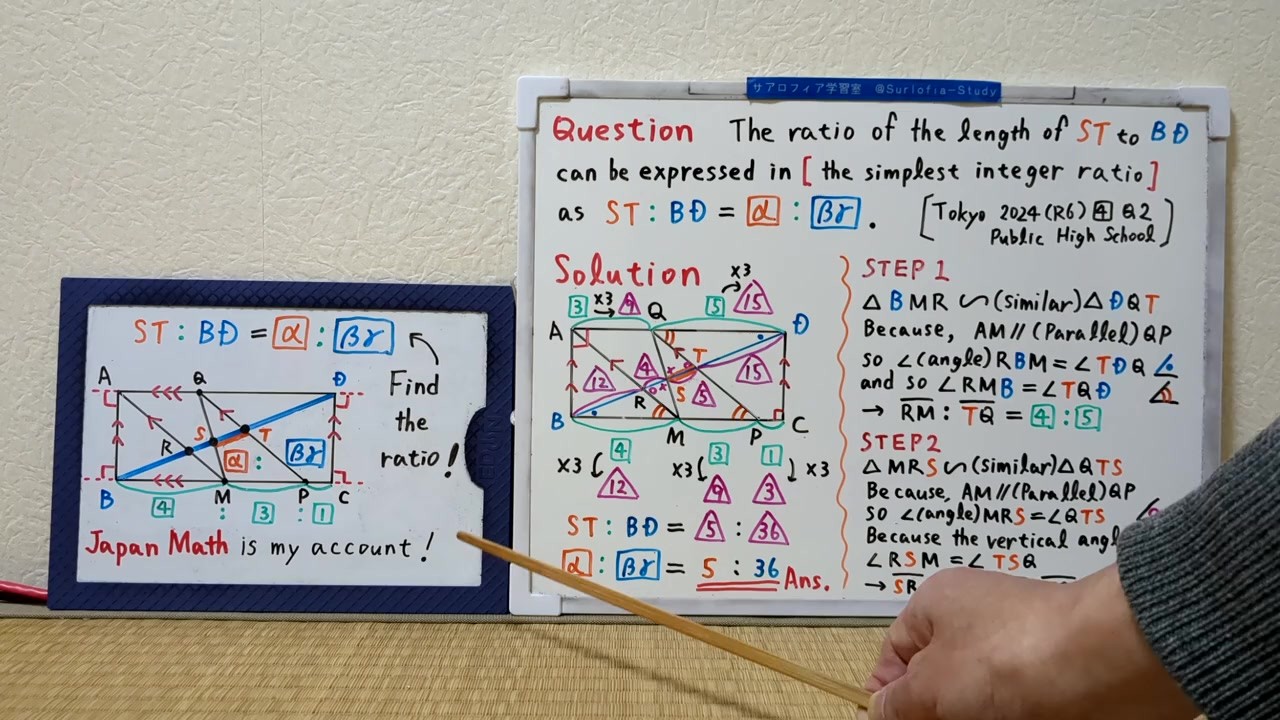 サアロフィア学習室 @Surlofia-Study
Question The ratio of the length of ST to BD
can be expressed in [the simplest integer ratio]
as ST : BD = α : βγ.
[Tokyo 2024 (R6) 4 Q2
Public High School]
Solution
×3
3 ×3 9 Q 5 15
A D
12 4 T 15
R S 5
B M P C
×3 4 ×3 3 1 ×3
12 9 3
ST : BD = 5 : 36
α : βγ = 5 : 36 Ans.
STEP 1
△BMR ∽ (similar) △DQT
Because, AM // (Parallel) QP
so ∠(angle) RBM = ∠TDQ
and so ∠RMB = ∠TQD
→ RM : TQ = 4 : 5
STEP2
△MRS ∽ (similar) △QTS
Because, AM // (Parallel) QP
so ∠(angle) MRS = ∠QTS
Because the vertical angl
∠RSM = ∠TSQ
→ SR
ST : BD = α : βγ
Find
the
ratio!
A Q D
R S T
α : βγ
B M P C
4 : 3 : 1
Japan Math is my account!